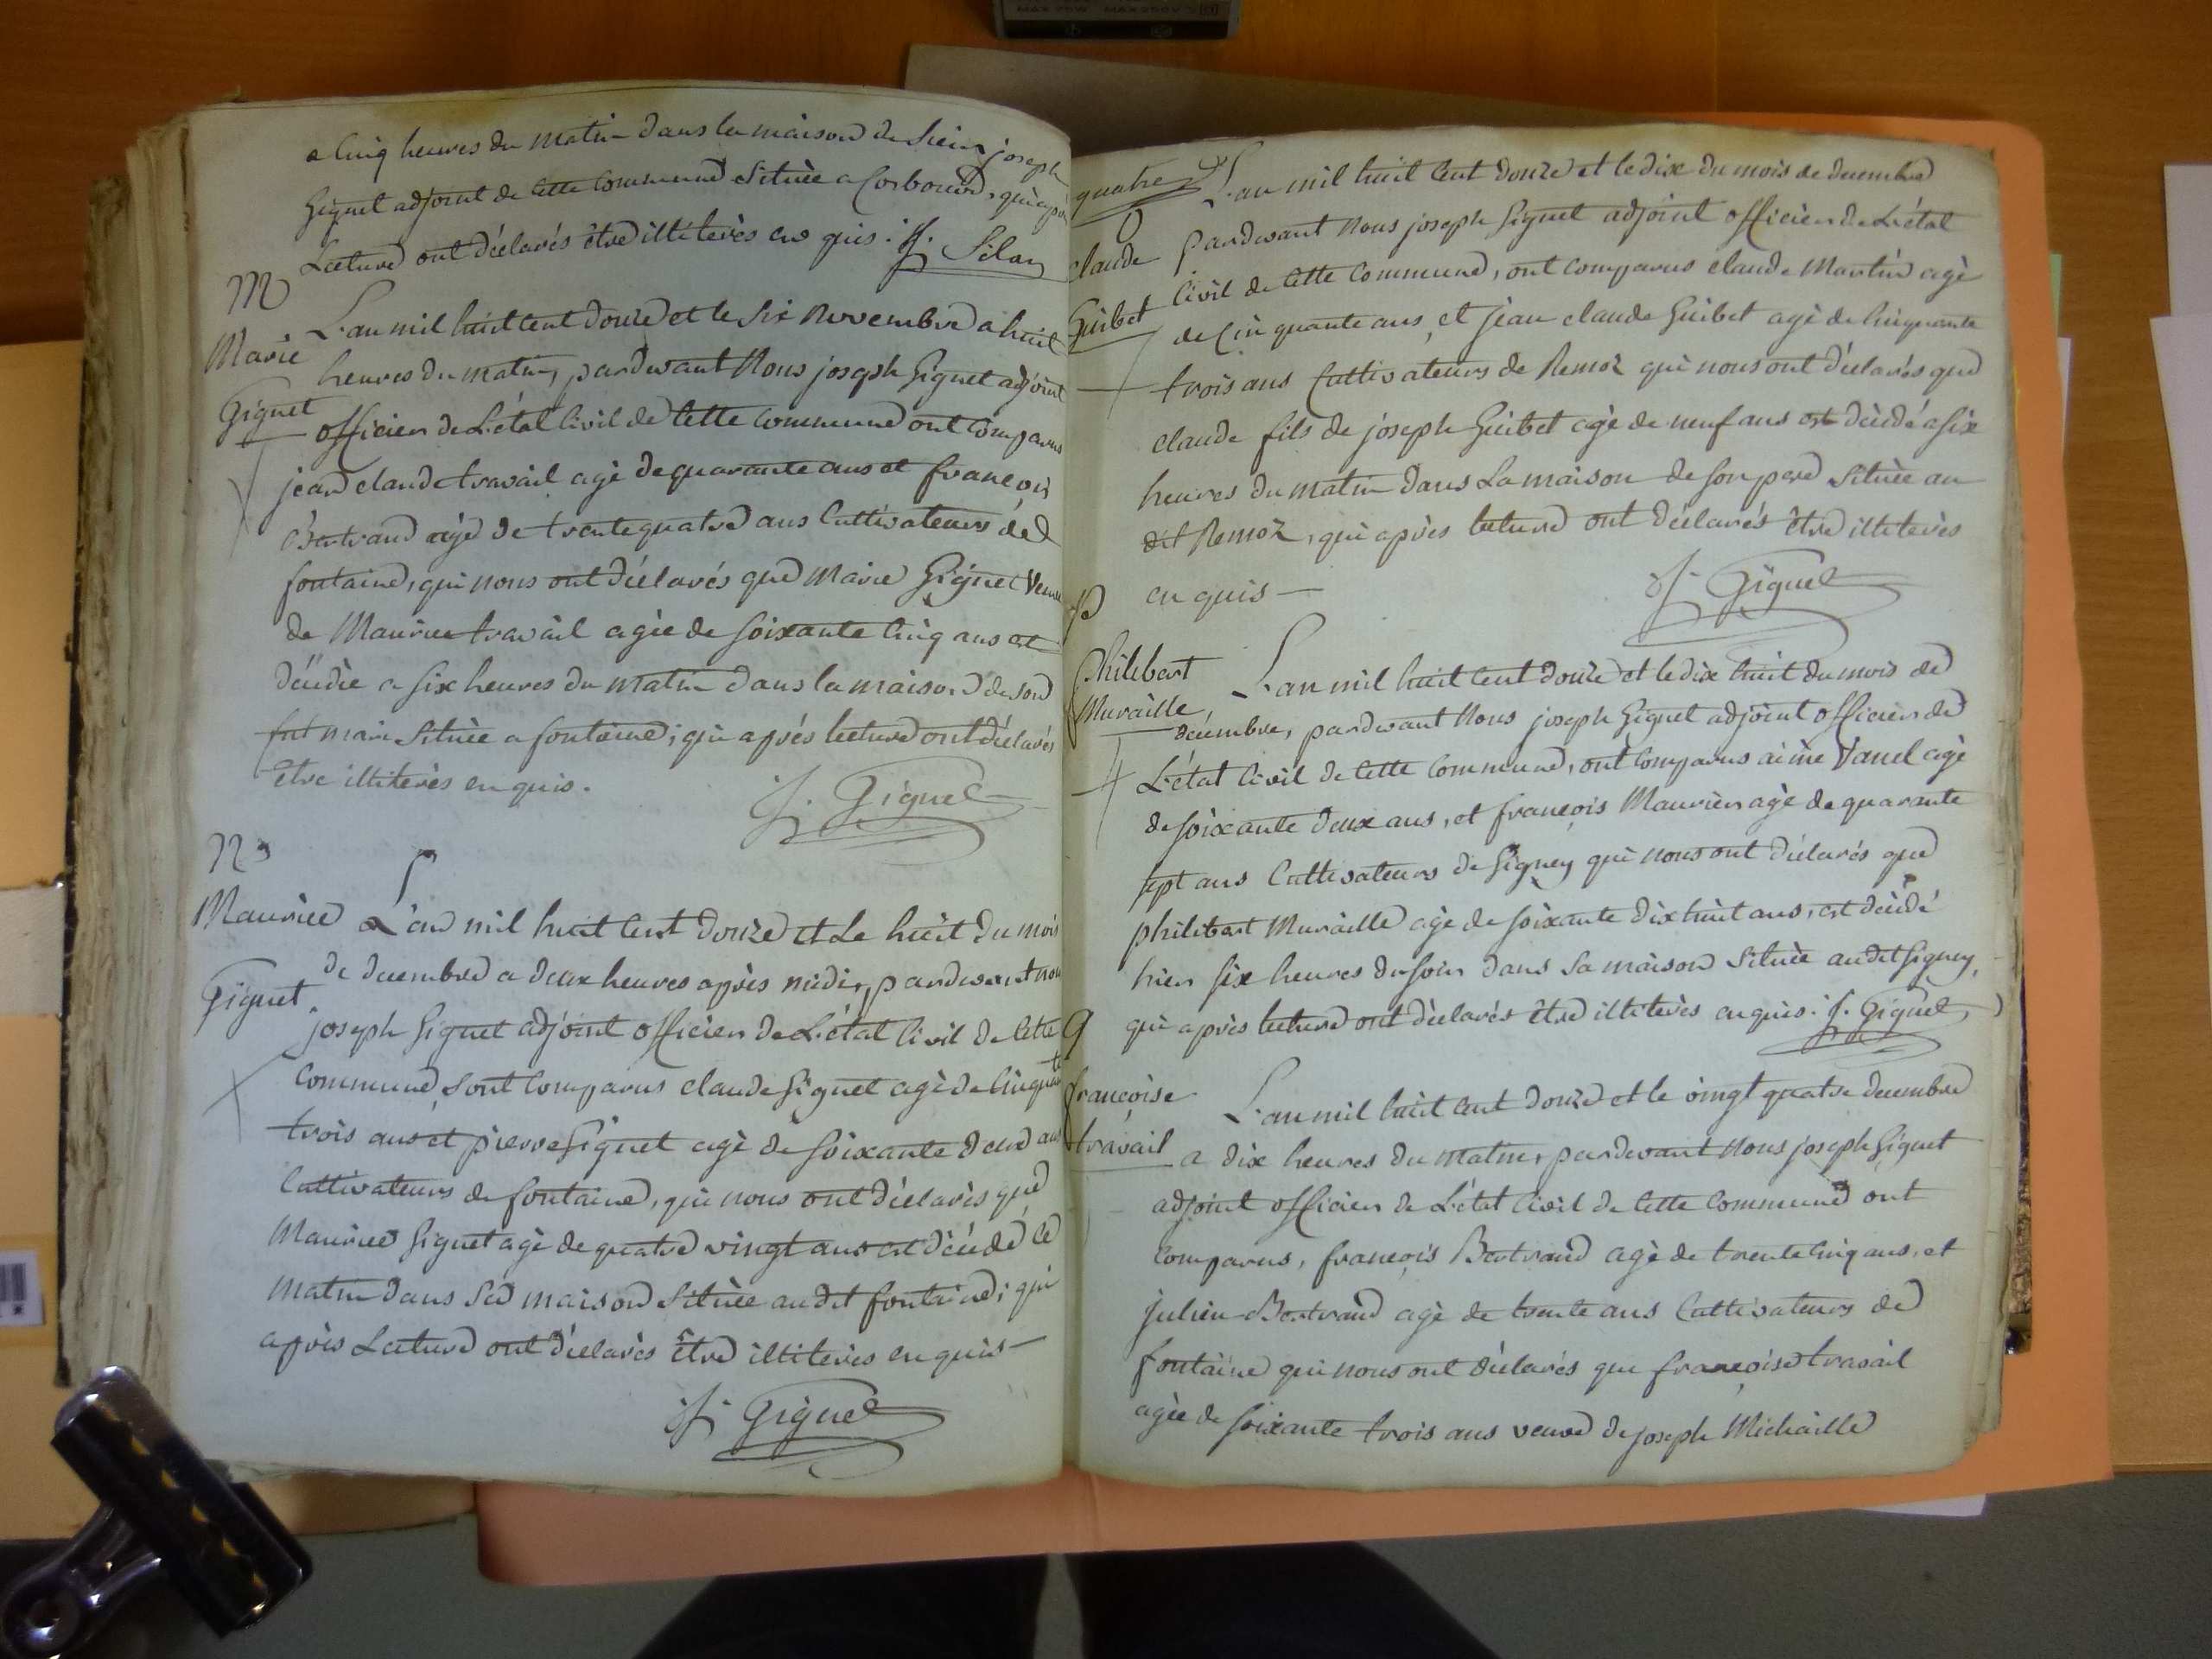 a cinq heures du matin dans la maison de sieur joseph
Giguet adjoint de cette commune située a Corbouod, qui après
Lecture ont déclarés être illiterès en quis. J. Silan
M
Marie
Giguet
L'an mil huit cent douze et le six Novembre a huit
heures du matin, pardevant Nous joseph Giguet adjoint
officier de L'état Civil de cette commune ont comparus
jean claude travail agé de quarante ans et françois
Bertrand agé de trente quatre ans Cultivateurs de
fontaine, qui nous ont déclarés que Marie Giguet veuve
de Maurice travail agée de soixante cinq ans est
décédée a six heures du matin dans la maison de son
fut mari située a fontaine; qui après lecture ont déclarés
être illiterès en quis. J. Giguet
N
Maurice
Giguet
L'an mil huit cent douze et Le huit du mois
de decembre a deux heures après midi, pardevant nous
joseph Giguet adjoint officier de L'état Civil de cette
commune, sont comparus claude Giguet agé de cinquante
trois ans et pierre Giguet agé de soixante deux ans
Cultivateurs de fontaine, qui nous ont déclarés que
Maurice Giguet agé de quatre vingt ans est décédé ce
matin dans sa maison située audit fontaine; qui
après Lecture ont déclarés être illiterès en quis
J. Giguet
quatre
O
claude
Guibet
L'an mil huit cent douze et le dix du mois de decembre
pardevant Nous joseph Giguet adjoint officier de L'état
Civil de cette commune, ont comparus claude Martin agé
de cinquante ans et jean claude Guibet agé de cinquante
trois ans Cultivateurs de Remoz qui nous ont déclarés que
claude fils de joseph Guibet agé de neuf ans est décédé a six
heures du matin dans La maison de son pere située au
dit Remoz, qui après lecture ont déclarés être illiterès
en quis
J. Giguet
P
Philibert
Muraille
L'an mil huit cent douze et le dix huit du mois de
décembre, pardevant Nous joseph Giguet adjoint officier de
L'état Civil de cette commune, ont comparus aimé Vanel agé
de soixante deux ans, et françois Maurier agé de quarante
sept ans Cultivateurs de Gigney qui nous ont déclarés que
philibert Muraille agé de soixante dix huit ans, est décédé
hier six heures du soir dans sa maison située audit Gigney,
qui après lecture ont déclarés être illiterès en quis. J. Giguet
Q
françoise
travail
L'an mil huit cent douze et le vingt quatre decembre
a dix heures du matin, pardevant Nous joseph Giguet
adjoint officier de L'état Civil de cette commune ont
comparus, françois Bertrand agé de trente cinq ans, et
julien Bertrand agé de trente ans Cultivateurs de
fontaine qui nous ont déclarés que françoise travail
agée de soixante trois ans veuve de joseph Michaille